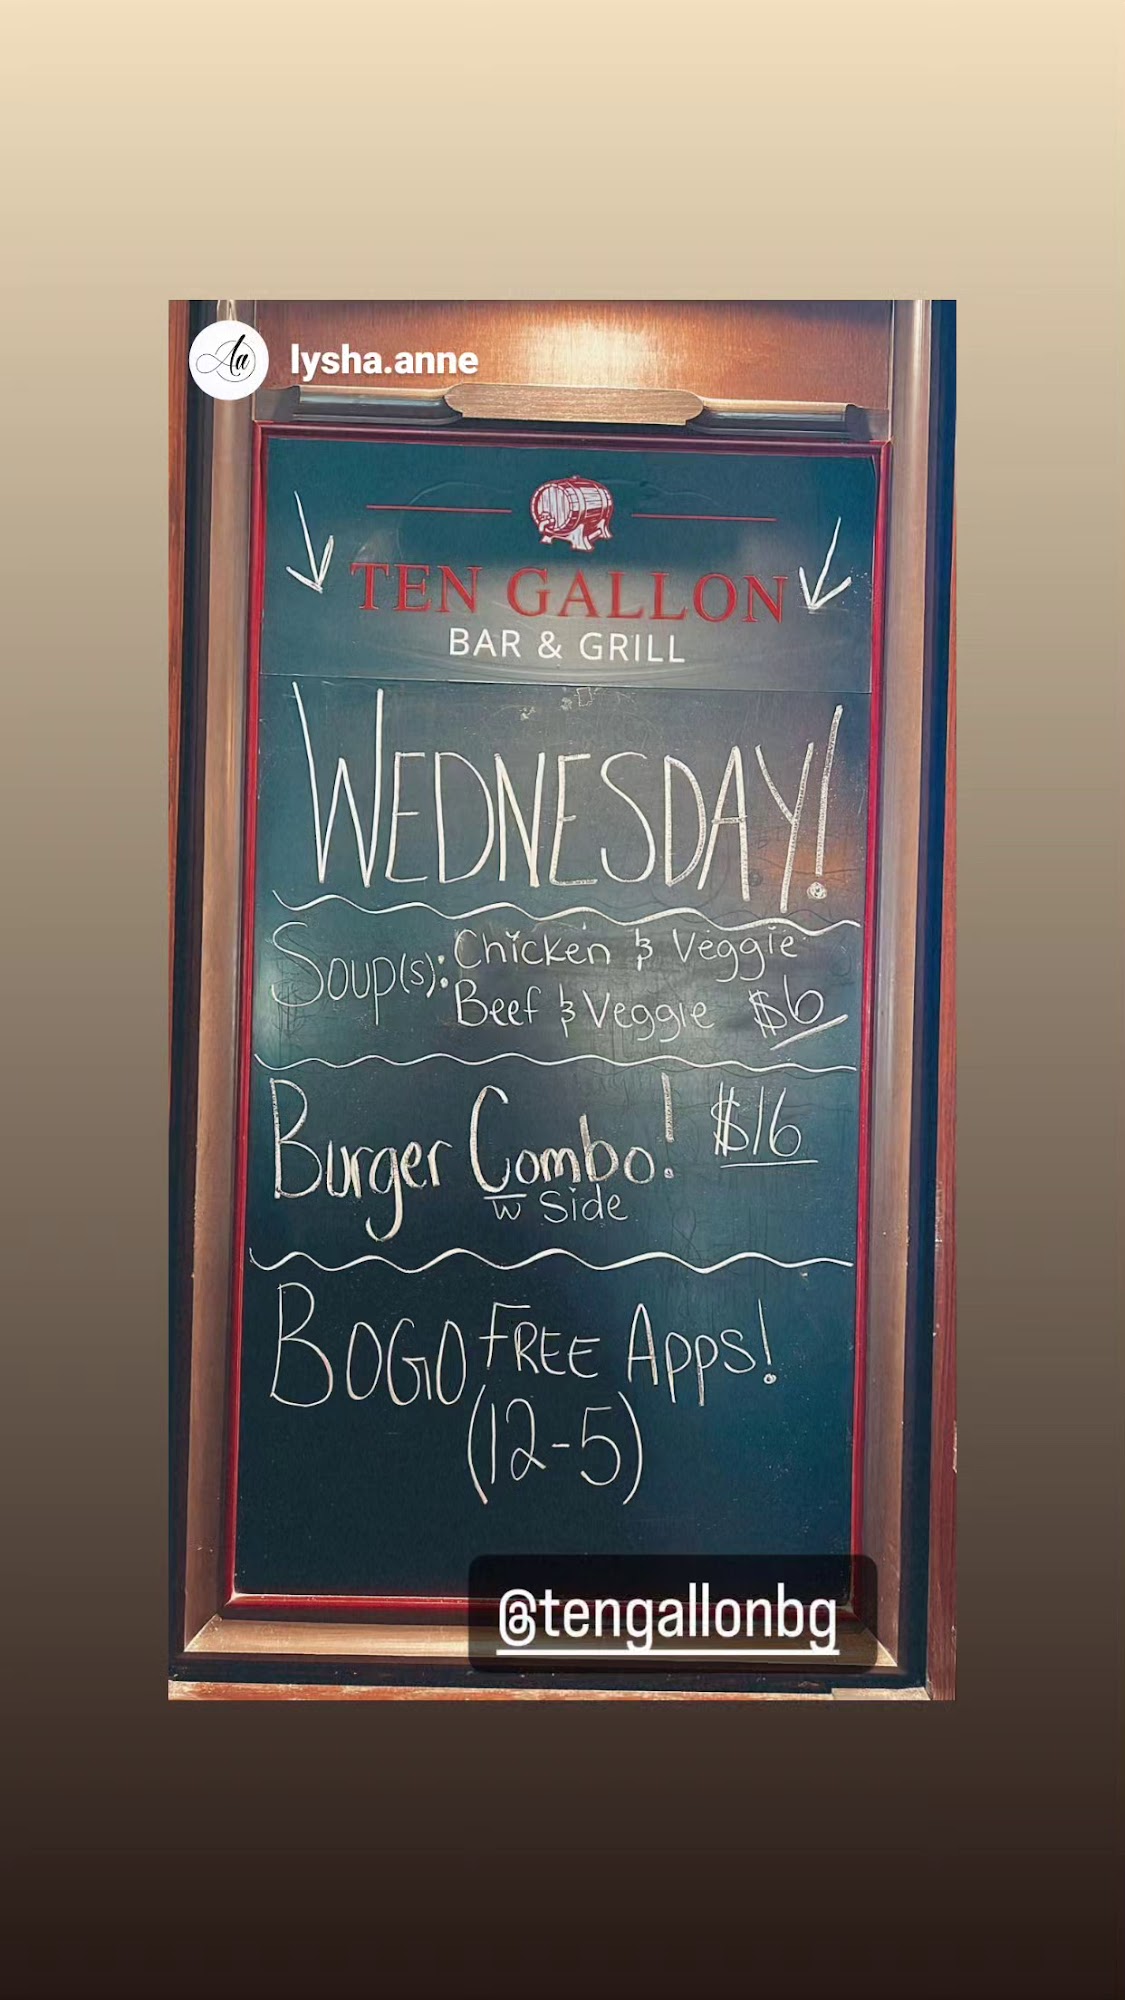 Aa lysha.anne
TEN GALLON
BAR & GRILL
WEDNESDAY!
Soup(s): Chicken & Veggie
Beef & Veggie $6
Burger Combo! $16
w Side
BOGO FREE Apps!
(12-5)
@tengallonbg